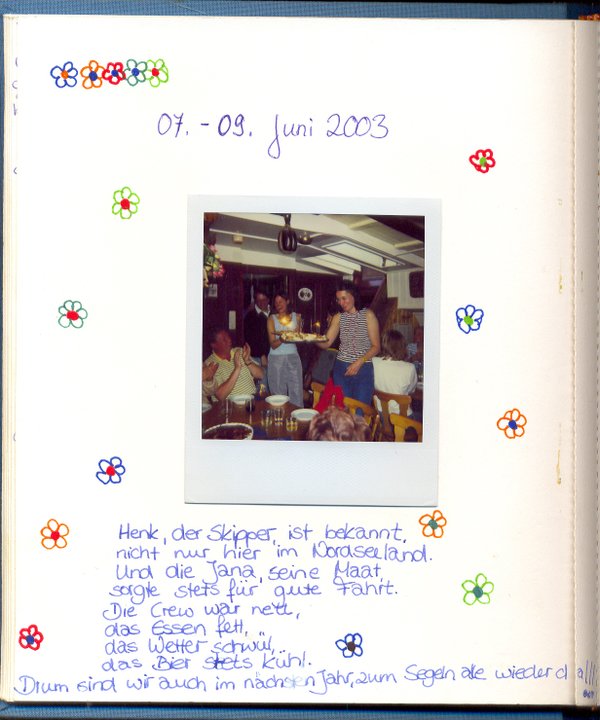 07. - 09. Juni 2003
Henk, der Skipper, ist bekannt,
nicht nur hier im Nordseeland.
Und die Jana, seine Maat,
sorgte stets für gute Fahrt.
Die Crew war nett,
das Essen fett,
das Wetter schwül,
das Bier stets kühl.
Drum sind wir auch im nächsten Jahr, zum Segeln alle wieder da!!!